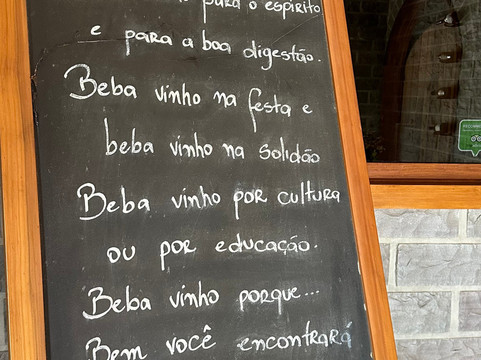 para o espírito
e para a boa digestão.
Beba vinho na festa e
beba vinho na solidão
Beba vinho por cultura
ou por educação.
Beba vinho porque...
Bem você encontrará